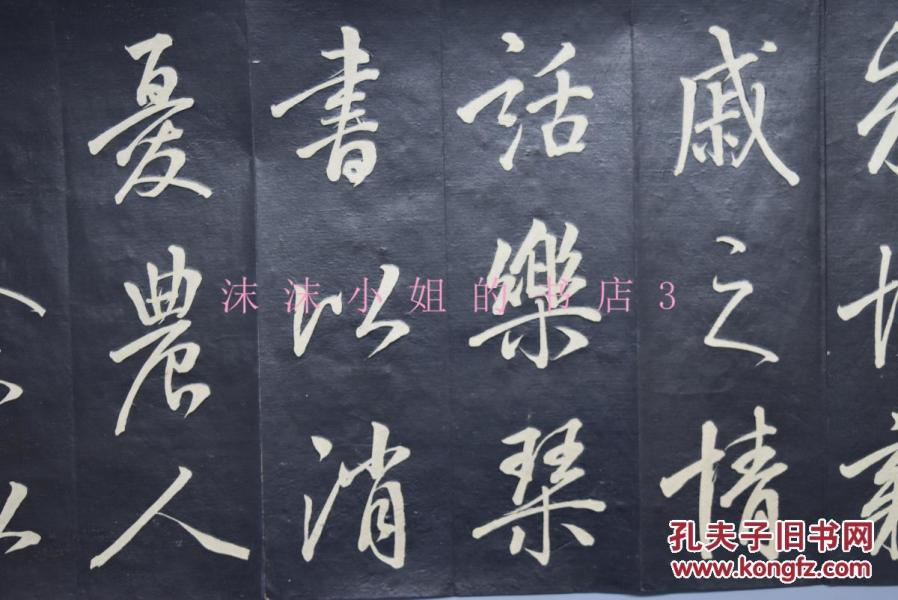 戚之情
話樂琴
書以消
憂農人
沫沫小姐的书店3
孔夫子旧书网
www.kongfz.com